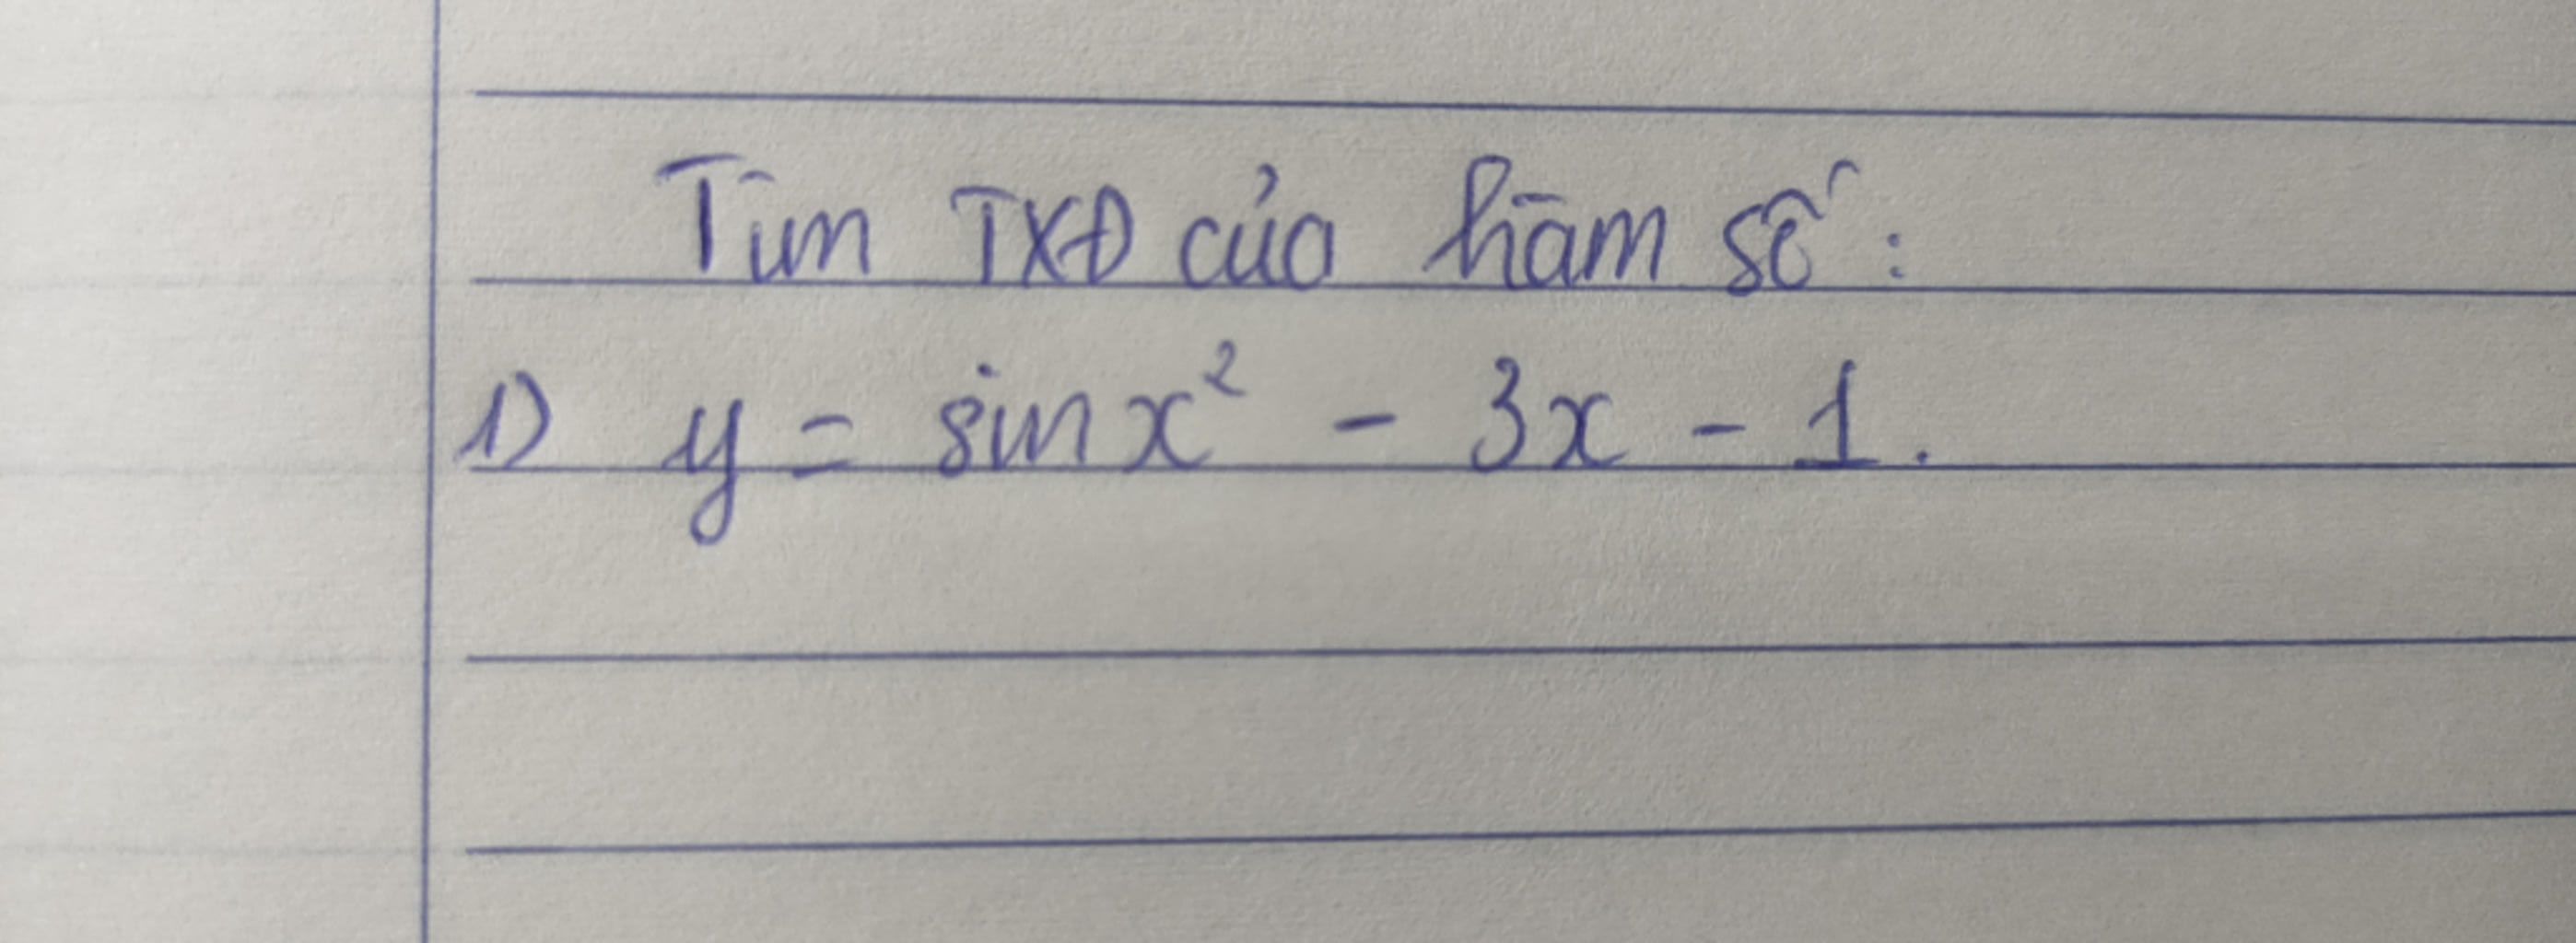 Tìm TXĐ của hàm số:
1) y = sin x² - 3x - 1.